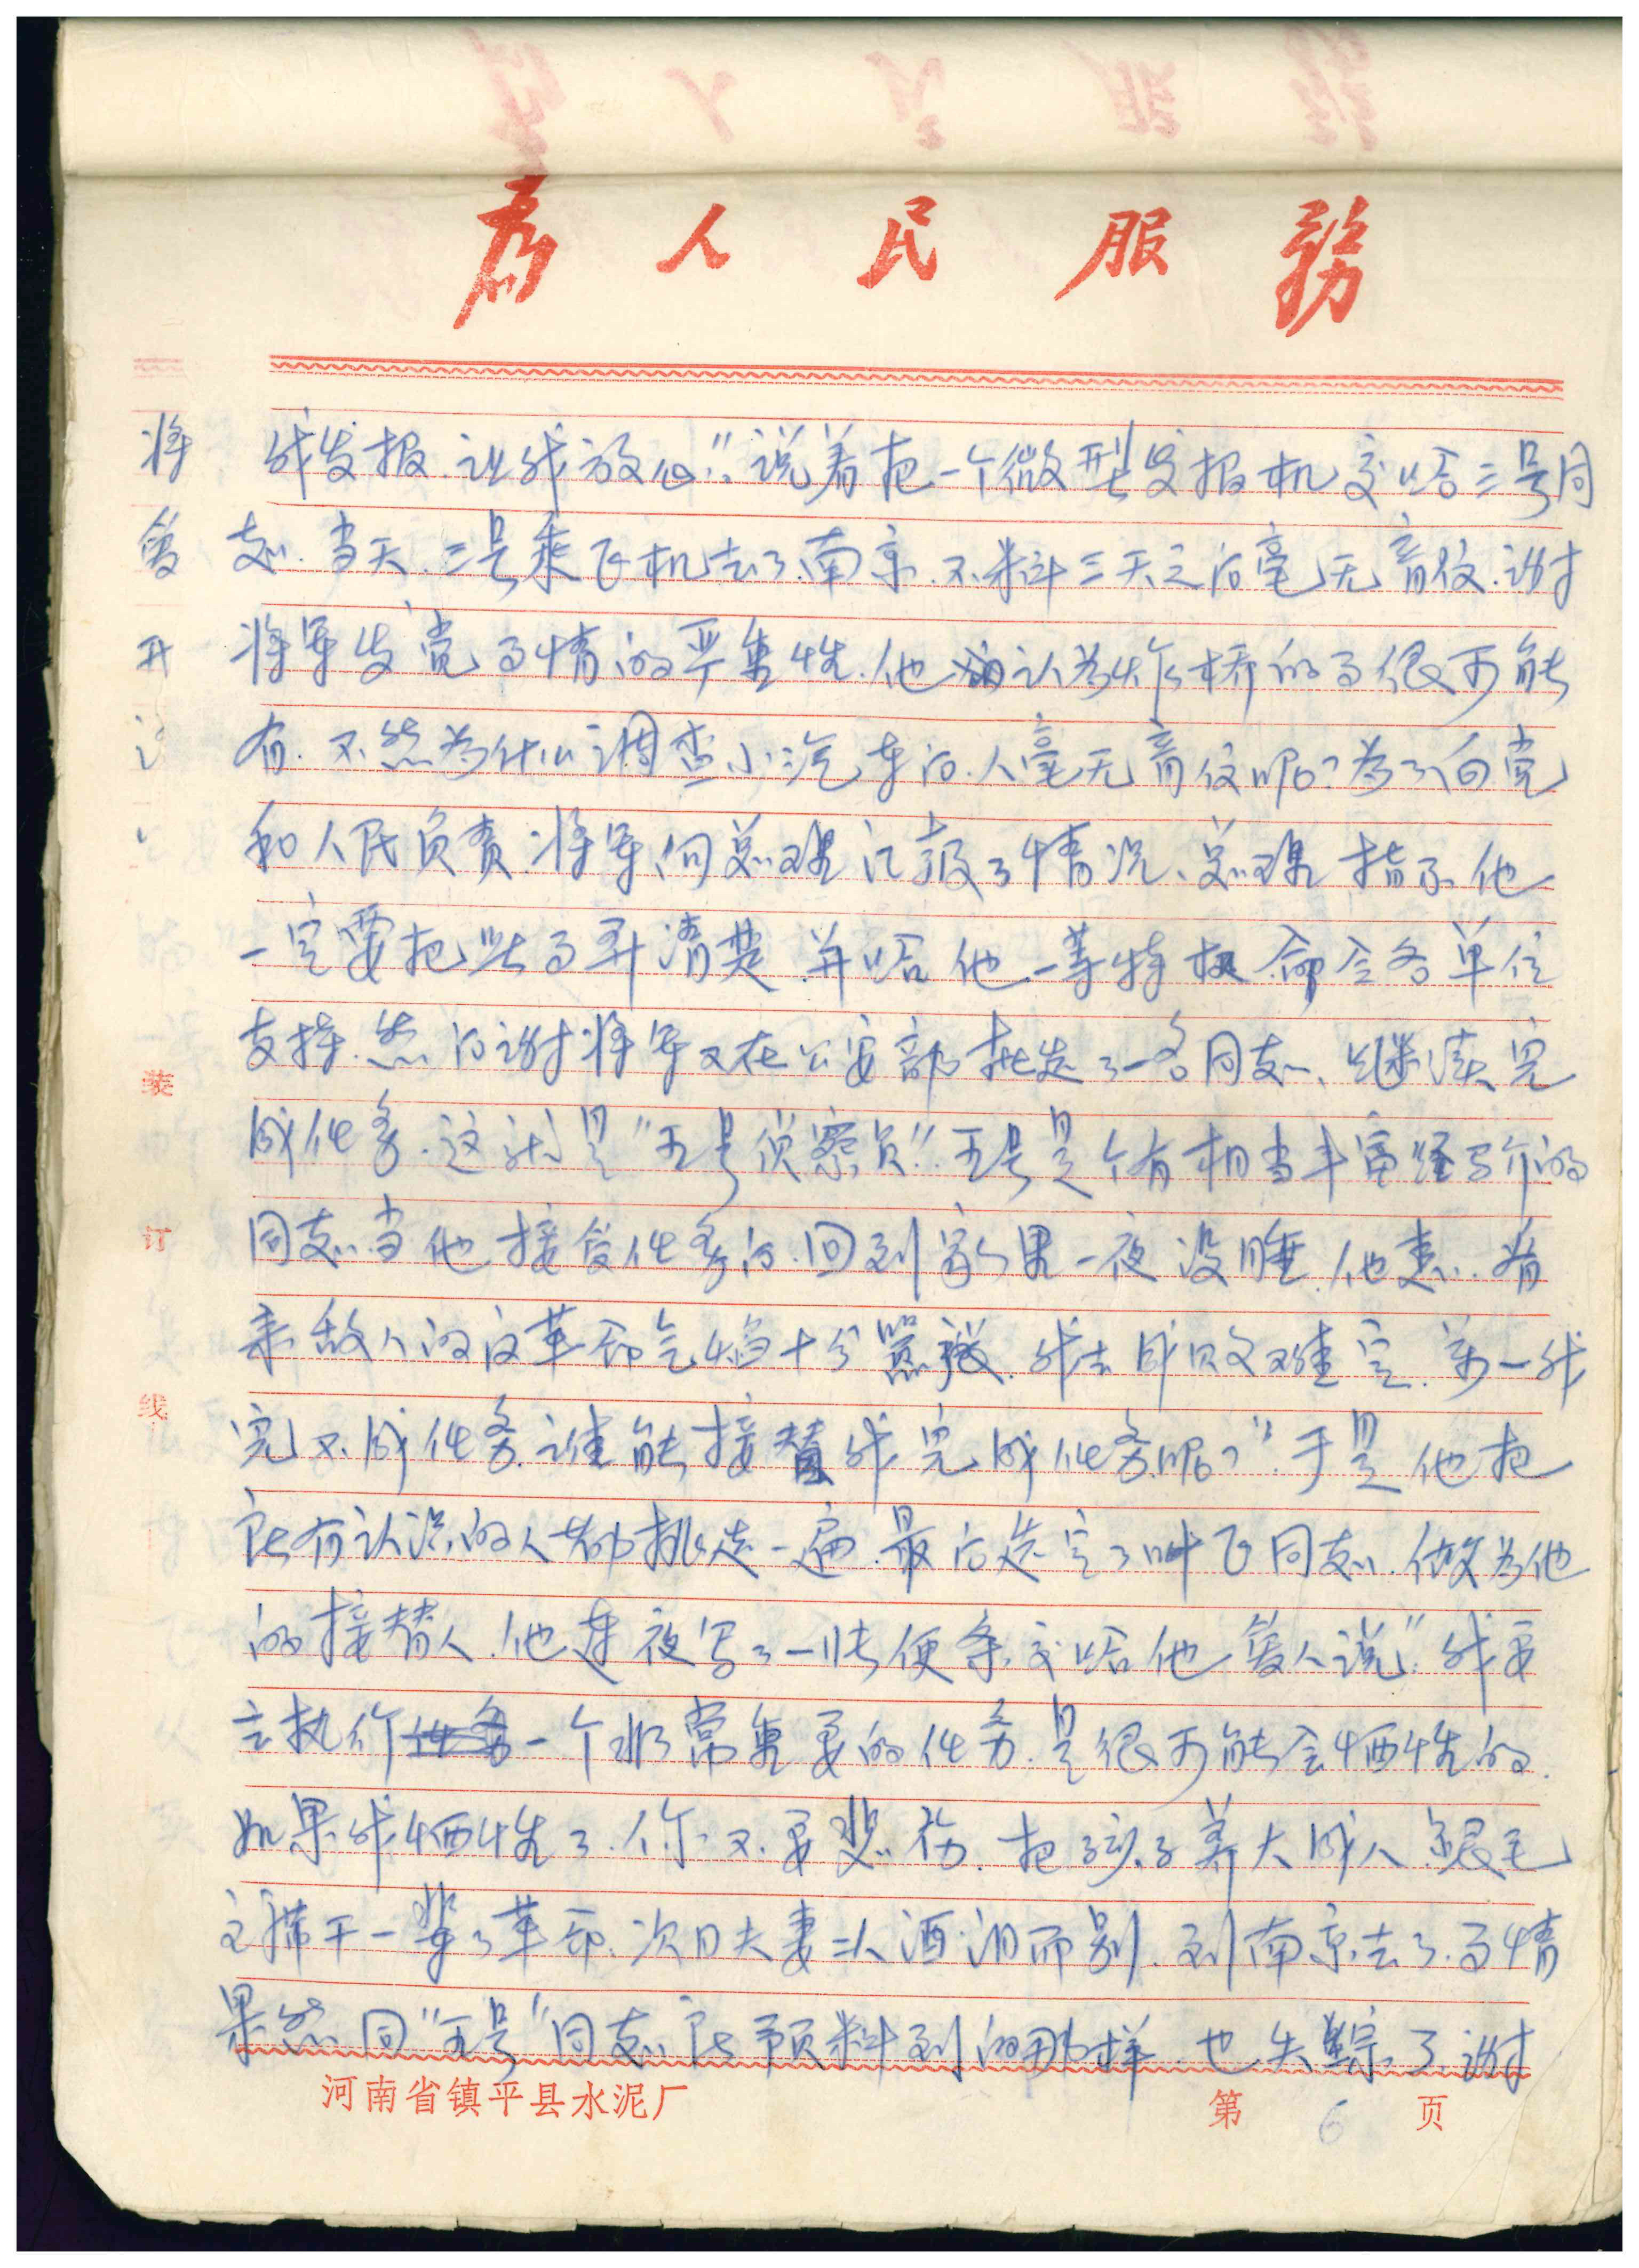 为人民服务
我发报.让我放心".说着把一个微型发报机交给三号同
志.当天.三号乘飞机去了南京.不料三天之后毫无音信.谢
将军发觉了事情的严重性.他认为炸桥的事很可能
有.不然为什么调查小汽车的人毫无音信呢?为了向党
和人民负责.将军向总理汇报了情况、总理指示他
一定要把此事弄清楚.并给他一等特权.命令各单位
支持.然后谢将军又在公安部挑选了一名同志、继续完
成任务.这就是"五号侦察员".五号是个有相当丰富经验的
同志.当他接受任务后.回到家里一夜没睡.他想:.看
来敌人的反革命气焰十分嚣张.我去成败难定.万一我
完不成任务.谁能接替我完成任务呢?".于是他把
所有认识的人都挑选一遍.最后选定了叶飞同志.做为他
的接替人.他连夜写了一张便条.交给他爱人说:"我要
去执行一个非常重要的任务.是很可能会牺牲的.
如果我牺牲了.你不要悲伤.把孩子养大成人.跟毛
主席干一辈子革命.次日夫妻二人洒泪而别.到南京去了.事情
果然同"五号"同志所预料到的那样.也失踪了.谢
将
爱
开
装
订
线
河南省镇平县水泥厂 第 6 页